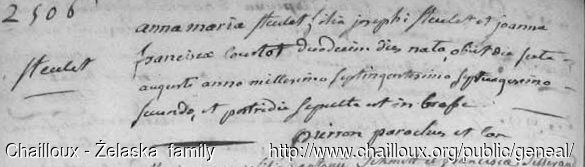 2506
anna maria steulet filia josephi steulet et joanna
steulet
franciscæ courtot duodecim dies nata, obiit die sexta
augusti anno millesimo septingentesimo septuagesimo
secundo, et postridie sepulta est in
pierron parochus et
Chailloux - Żelaska family http://www.chailloux.org/public/geneal/